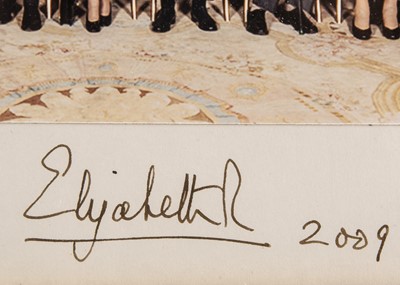 Elizabeth R 2009